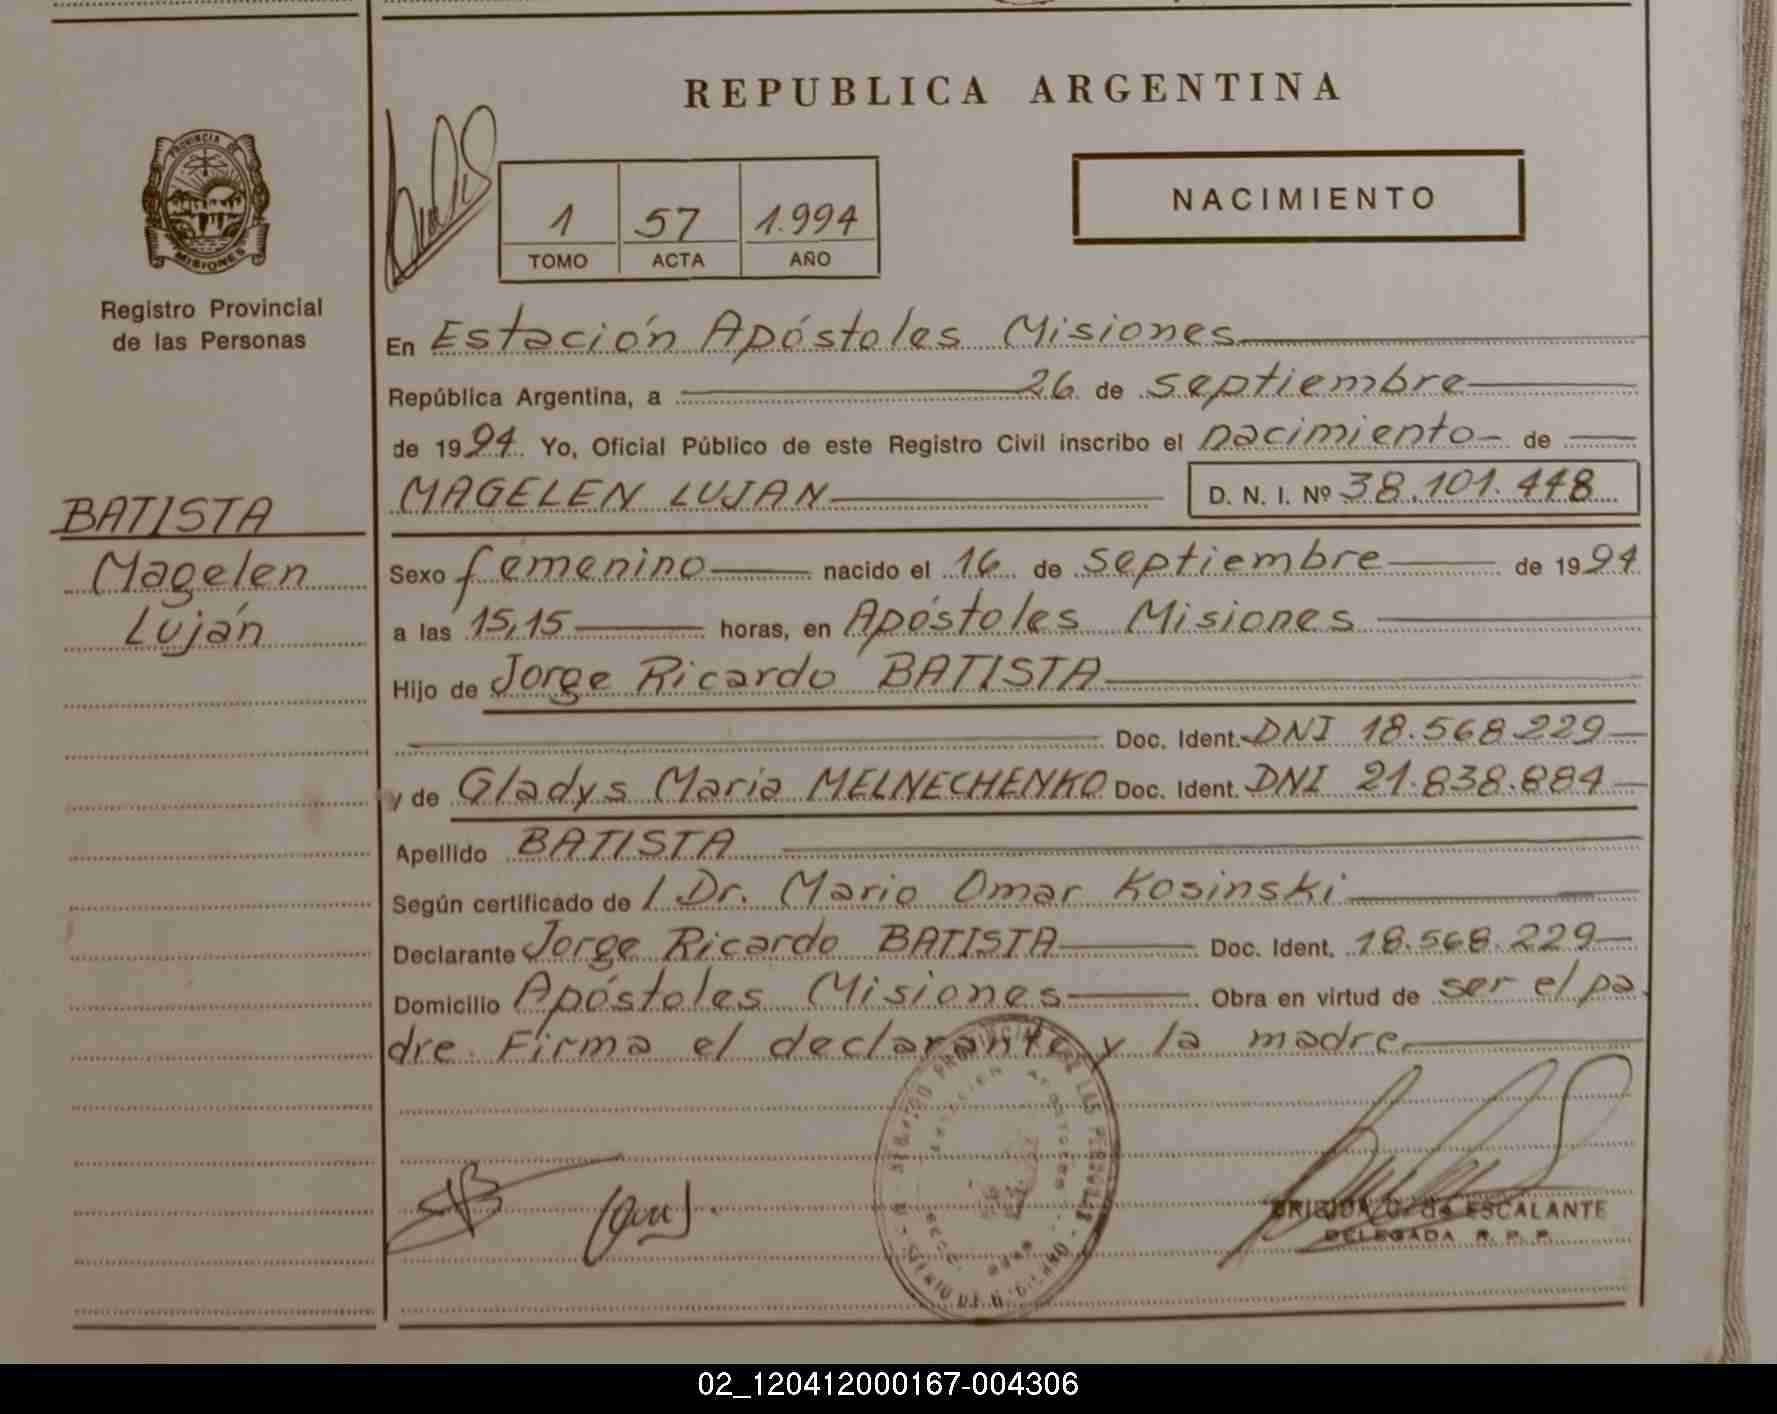 REPUBLICA ARGENTINA
PROVINCIA DE
MISIONES
Registro Provincial
de las Personas
1 57 1.994
TOMO ACTA AÑO
NACIMIENTO
BATISTA
Magelen
Luján
En Estación Apóstoles Misiones
República Argentina, a 26 de septiembre
de 1994. Yo, Oficial Público de este Registro Civil inscribo el nacimiento de
MAGELEN LUJAN D. N. I. Nº 38.101.448
Sexo femenino nacido el 16 de septiembre de 1994
a las 15,15 horas, en Apóstoles Misiones
Hijo de Jorge Ricardo BATISTA
Doc. Ident. DNI 18.568.229
y de Gladys Maria MELNECHENKO Doc. Ident. DNI 21.838.884
Apellido BATISTA
Según certificado de / Dr. Mario Omar Kosinski
Declarante Jorge Ricardo BATISTA Doc. Ident. 18.568.229
Domicilio Apóstoles Misiones Obra en virtud de ser el pa
dre. Firma el declarante y la madre.
ESCALANTE
DELEGADA R. P. P.
02_120412000167-004306